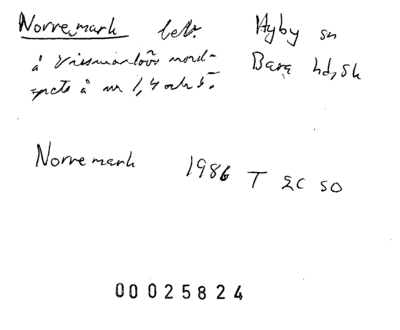 Norremark bebo Hyby sn
å Vissmarlövs nord-
Bara hd, Sk
spets å nr 1, 4 och 5.
Norremark 1986 T ÄC SO
00025824